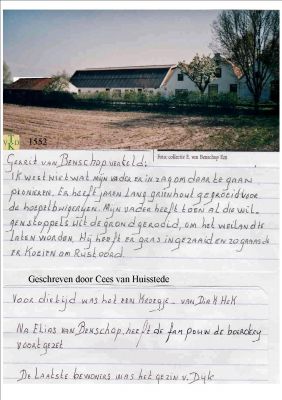 1552
Foto: collectie E. van Benschop Ezn
Gerrit van Benschop verteld:
Ik weet niet wat mijn vader er in zag om daar te gaan
pionieren. Er heeft jaren lang grienhout gegroeid voor
de hoepelbuigerijen. Mijn vader heeft toen al die wil-
genstoppels uit de grond gerooid, om het weiland te
laten worden. Hij heeft er gras ingezaaid en zo graasde
er koeien om Rustoord
Geschreven door Cees van Huisstede
Voor die tijd was het een kroegje van Dirk Hek
Na Elias van Benschop, heeft de fam Pouw de boerderij
voortgezet
De laatste bewoners was het gezin v. Dijk